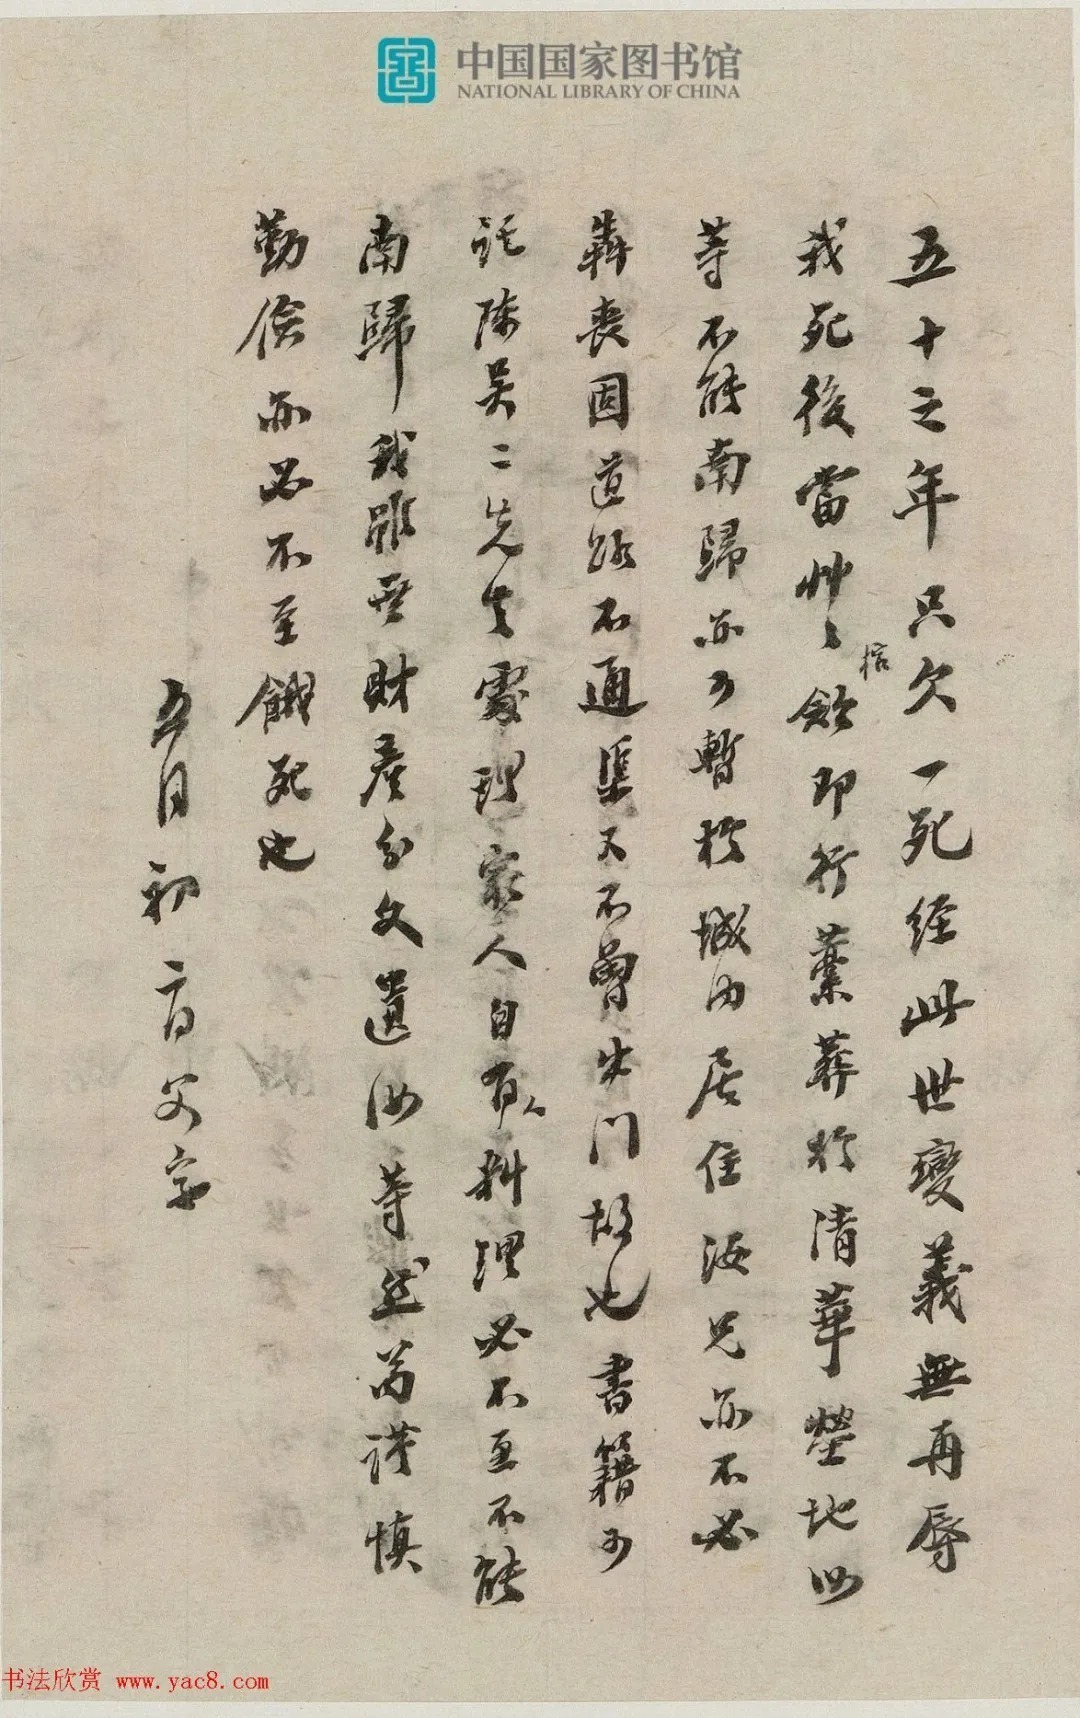 中国国家图书馆
NATIONAL LIBRARY OF CHINA
五十之年只欠一死經此世變義無再辱
我死後當艸〻棺斂即行藁葬於清華塋地汝
等不能南歸亦可暫於城内居住汝兄亦不必
奔喪因道路不通渠又不曾出門故也書籍可
託陳吳二先生處理家人自有人料理必不至不能
南歸我雖無財產分文遺汝等然苟謹慎
勤儉亦必不至餓死也
五月初二日父字
书法欣赏 www.yac8.com